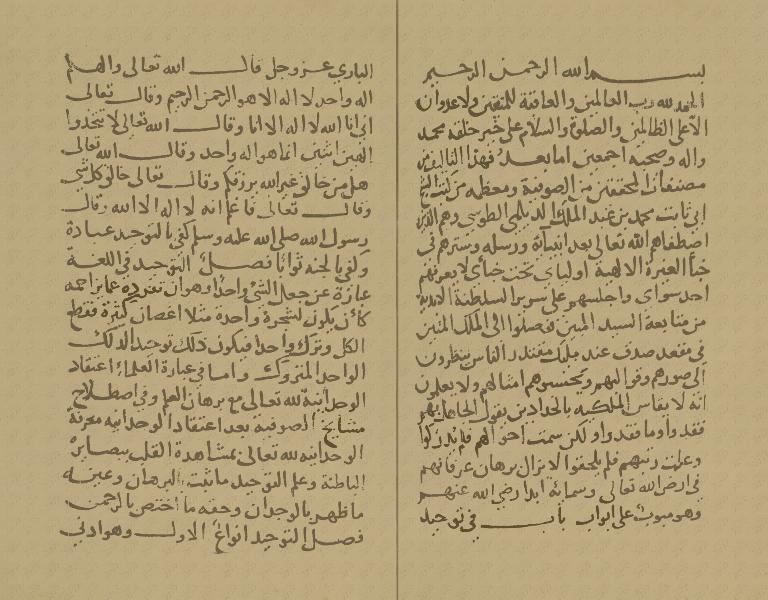 بسم الله الرحمن الرحيم
الحمد لله رب العالمين والعاقبة للمتقين ولا عدوان
الا على الظالمين والصلوة والسلام على خير خلقه محمد
واله وصحبه اجمعين اما بعد فهذا التاليف من
مصنفات المحققين من الصوفية ومعظمه من الشيخ
ابي ثابت محمد بن عبد الملك الديلمي الطوسي وهم الذين
اصطفاهم الله تعالى بعد انبيائه ورسله وسترهم في
خبأ العزة الالهية اوليائي تحت خبائي لا يعرفهم
احد سواي واجلسهم على سرير السلطنة الابدية
من متابعة السيد المبين فصلوا الى الملك المتين
في مقعد صدق عند مليك مقتدر الناس ينظرون
الى صورهم ويحسبوهم امثالهم ولا يعلمون
انه لا يقاس الملكية بالحدادين يقول الجاهل بهم
فقد وا وما فقدوا ولكن سمت احوالهم فلم يدركوا
وعلت رتبهم فلم يلحقوا لا تزال برهان عرفانهم
في ارض الله تعالى وسمائه ابدا رضي الله عنهم
وهو مبوب على ابواب باب في توحيد
الباري عز وجل قال الله تعالى والهكم
اله واحد لا اله الا هو الرحمن الرحيم وقال تعالى
اني انا الله لا اله الا انا وقال الله تعالى لا تتخذوا
الهين اثنين انما هو اله واحد وقال الله تعالى
هل من خالق غير الله يرزقكم وقال تعالى خالق كل شي
وقال تعالى فاعلم انه لا اله الا الله وقال
رسول الله صلى الله عليه وسلم كفى بالتوحيد عبادة
وكفى بالجنة ثوابا فصل التوحيد في اللغة
عبارة عن جعل الشي واحدا وهو ان تفرده عما زاحمه
كأن يكون لشجرة واحدة مثلا اغصان كثيرة فتقطع
الكل وتترك واحدا فيكون ذلك توحيدا لذلك
الواحد المتروك واما في عبارة العلماء اعتقاد
الوحدانية لله تعالى مع برهان العلم وفي اصطلاح
مشايخ الصوفية بعد اعتقاد الوحدانية معرفة
الوحدانية لله تعالى بمشاهدة القلب ببصائره
الباطنة وعلم التوحيد ما ثبت بالبرهان وعينه
ما ظهر بالوجدان وحقه ما اختص بالرحمن
فصل التوحيد انواع الاول وهو ادنى